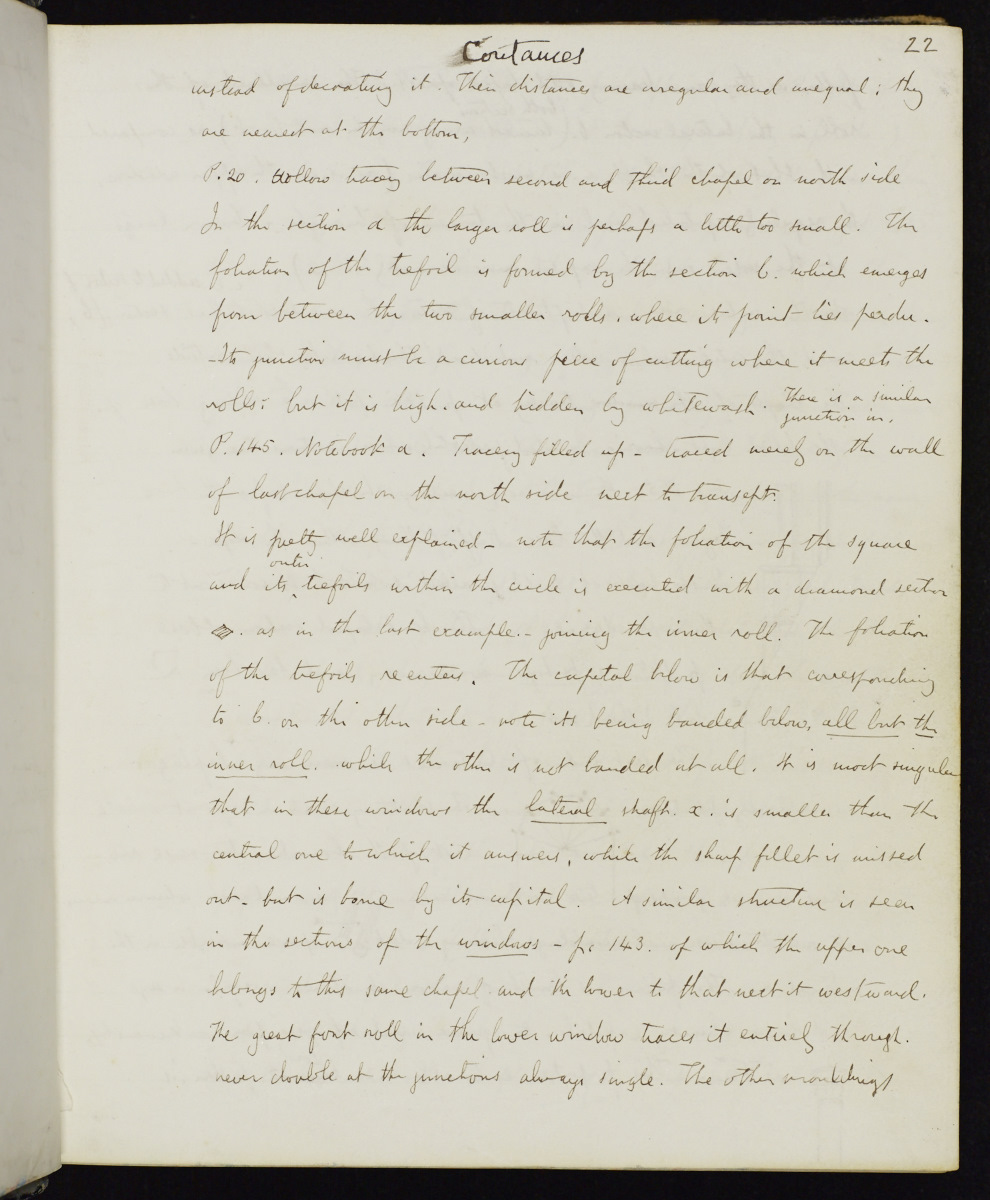 Coutances
22
instead of decorating it. Their distances are irregular and unequal; they
are nearest at the bottom,
P. 20. Hollow tracery between second and third chapel on north side
In the section a the larger roll is perhaps a little too small. The
foliation of the trefoil is formed by the section b. which emerges
from between the two smaller rolls. where its point lies perdu.
- Its junction must be a curious piece of cutting where it meets the
rolls: but it is high. and hidden by whitewash. There is a similar
junction in.
P. 145. Notebook a. Tracery filled up - traced merely on the wall
of last chapel on the north side next to transept.
It is pretty well explained - note that the foliation of the square
outer
and its trefoils within the circle is executed with a diamond section
. as in the last example. - joining the inner roll. The foliation
of the trefoils reenters. The capital below is that corresponding
to b. on the other side - note its being banded below, all but the
inner roll. while the other is not banded at all. It is most singular
that in these windows the lateral shaft. x. is smaller than the
central one to which it answers, while the sharp fillet is missed
out - but is borne by its capital. A similar structure is seen
in the sections of the windows - p. 143. of which the upper one
belongs to this same chapel and the lower to that next it westward.
The great front roll in the lower window traces it entirely through.
never double at the junctions always single. The other mouldings